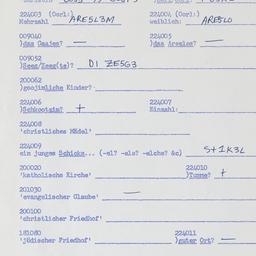 224003 (Corl:)
Mehrzahl ARE5L3M
224004 (Corl:)
weiblich: ARE5LO
009040
)das Gaajes? —
224005
)das Areales? —
009052
)Sees/Zees(te)? D1 ZE5G3
200062
)goojimlichs Kinder?
224006
)Schkootzim? +
224007
Einzahl:
224008
'christliches Mädel'
224009
ein junges Schicks... (-el? -sls? -elchs? &c) S+1K3L
200020
'katholische Kirche'
224010
)Tumme? +
201030
'evangelischer Glaube' —
200100
'christlicher Friedhof'
181080
'jüdischer Friedhof'
224011
)guter Ort? —